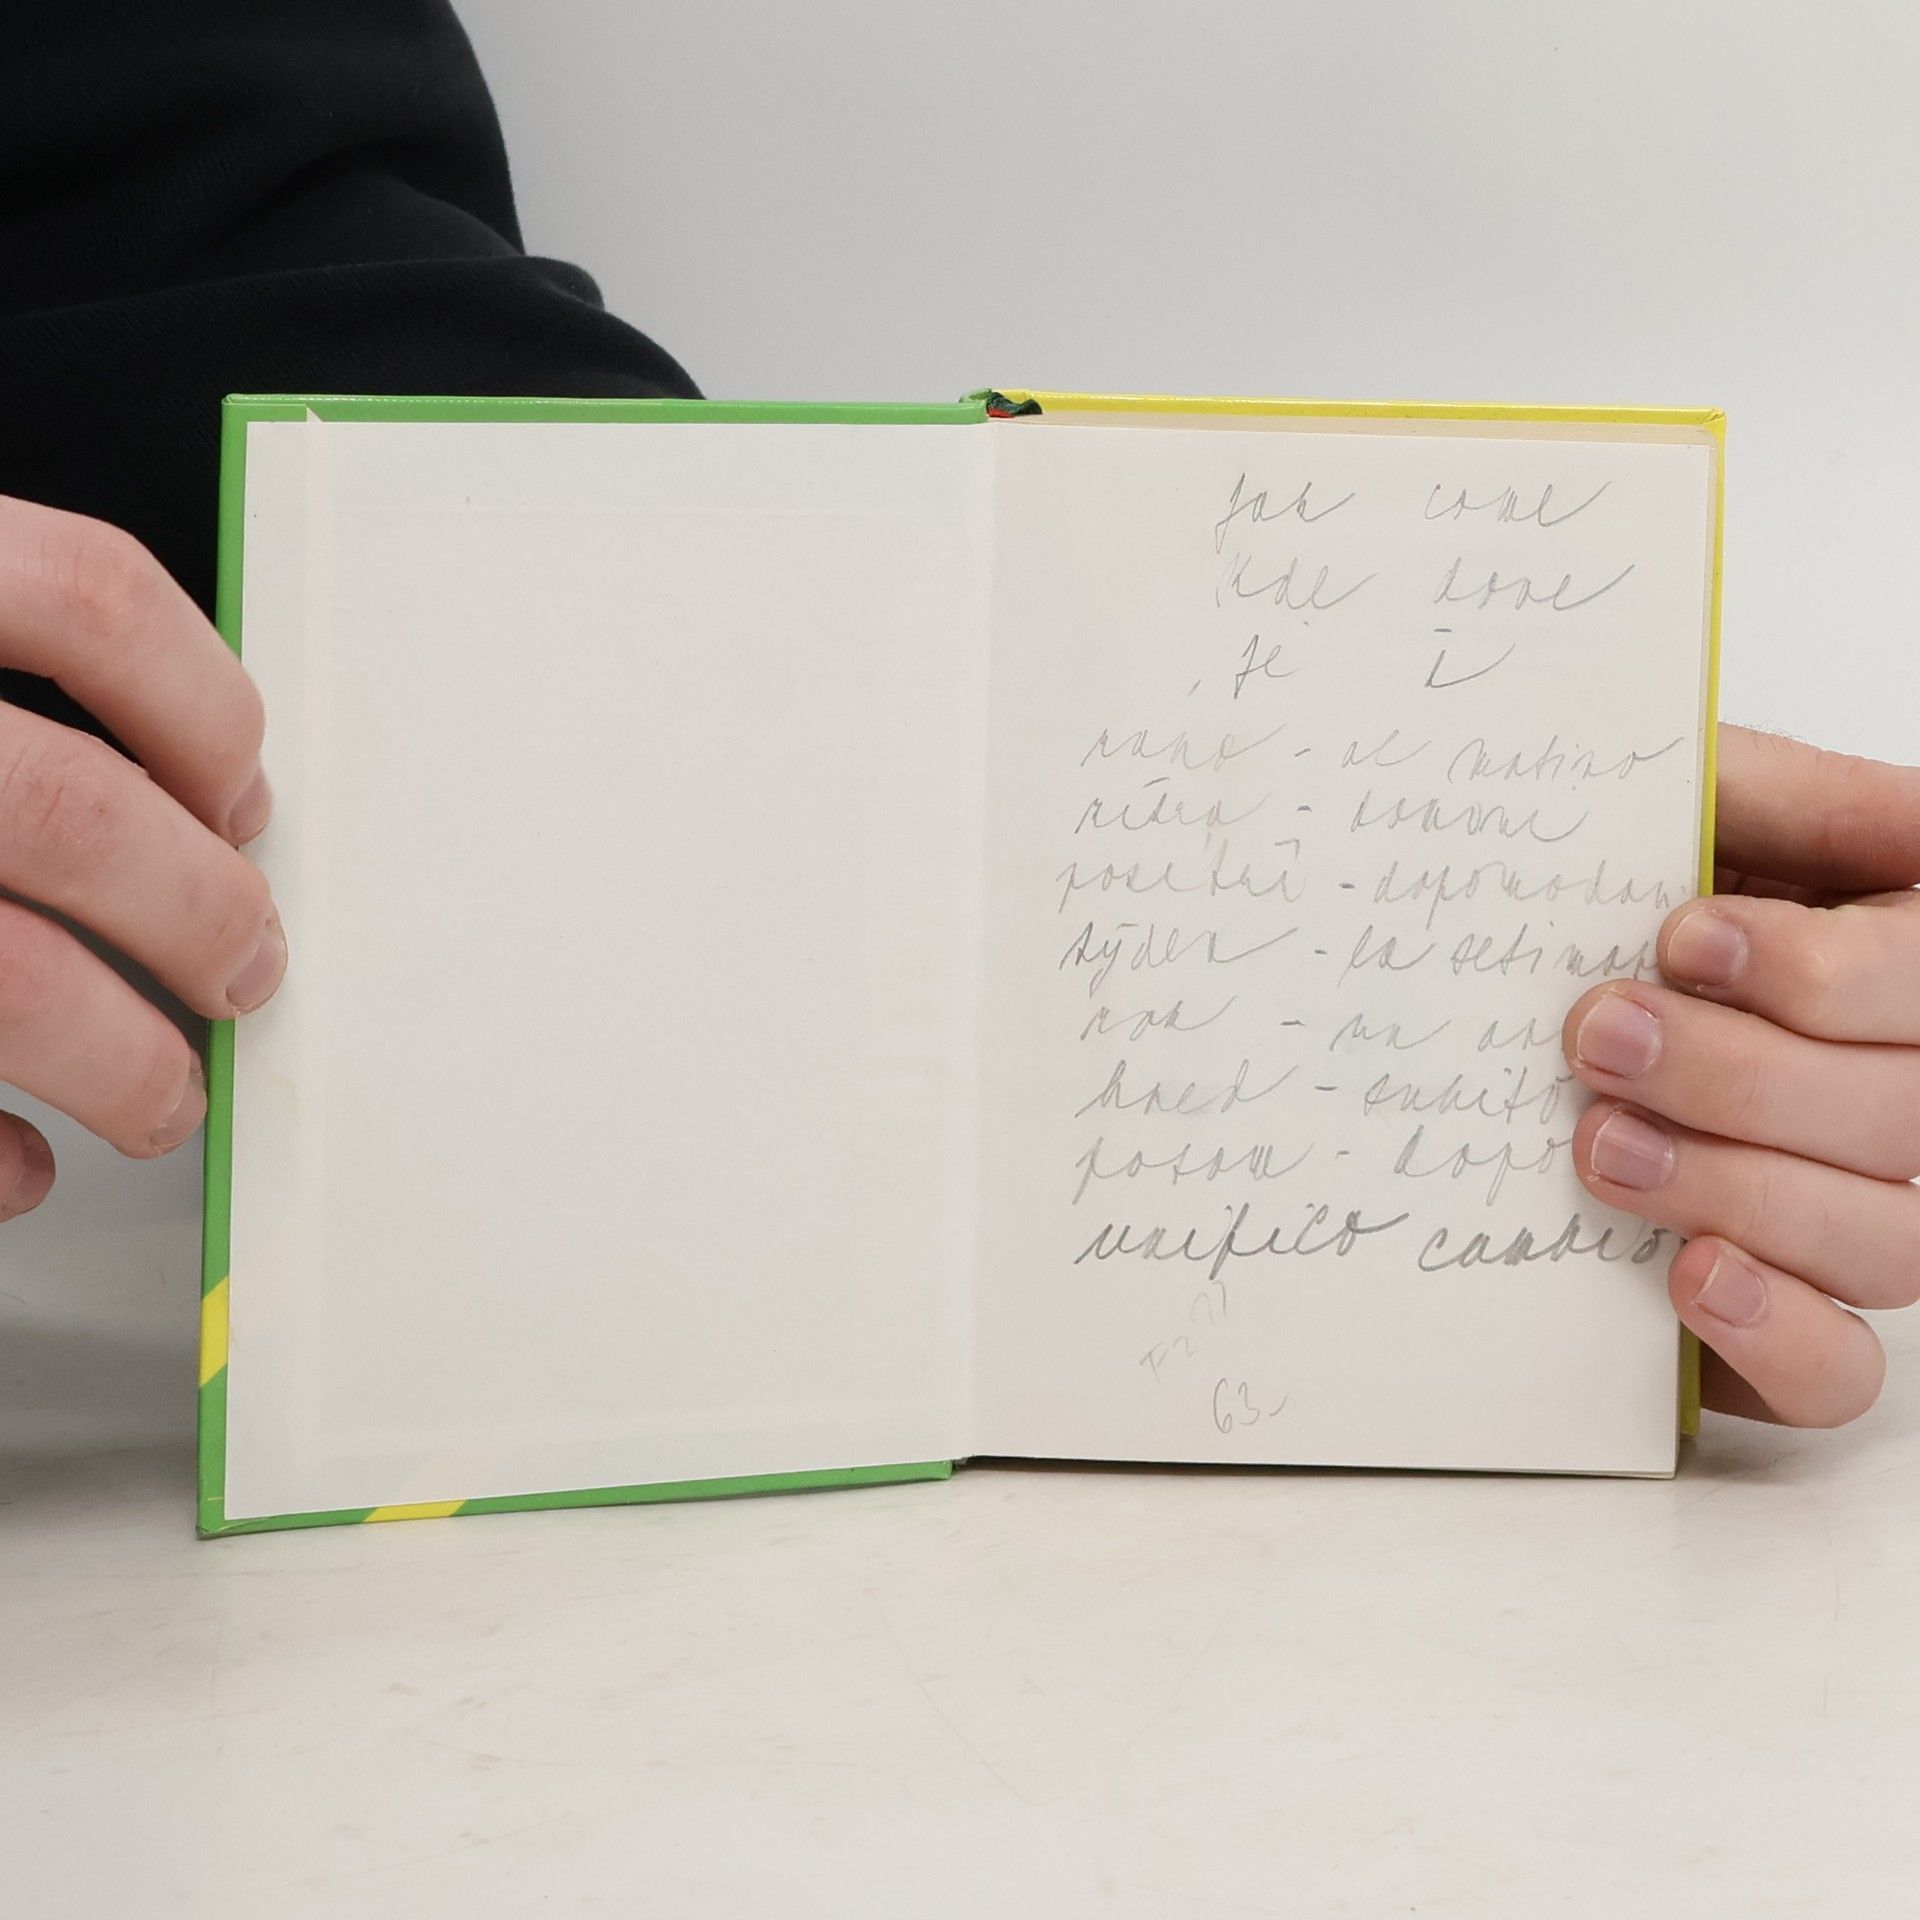 jak come
Kde dove
je ī
rano - al matino
zítra - domoni
pozítří - dopomodani
týden - la setiman
rok - un an
hned - subito
potom - dopo
unifico cambio
63,-